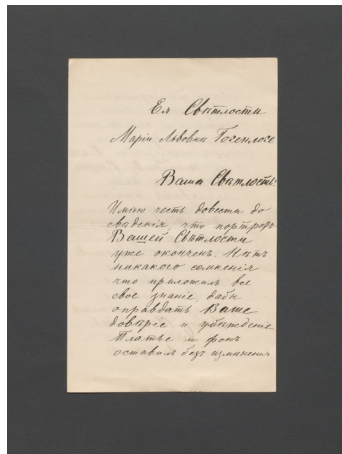 Ея Свѣтлости
Маріи Львовнѣ Гогенлоге
Ваша Свѣтлость!
Имѣю честь довести до
свѣдѣнія, что портретъ
Вашей Свѣтлости
уже оконченъ. Нѣтъ
никакого сомненія
что приложилъ все
свое знаніе, дабы
оправдать Ваше
довѣріе и убѣжденіе
Платье и фонъ
оставилъ безъ измѣненія